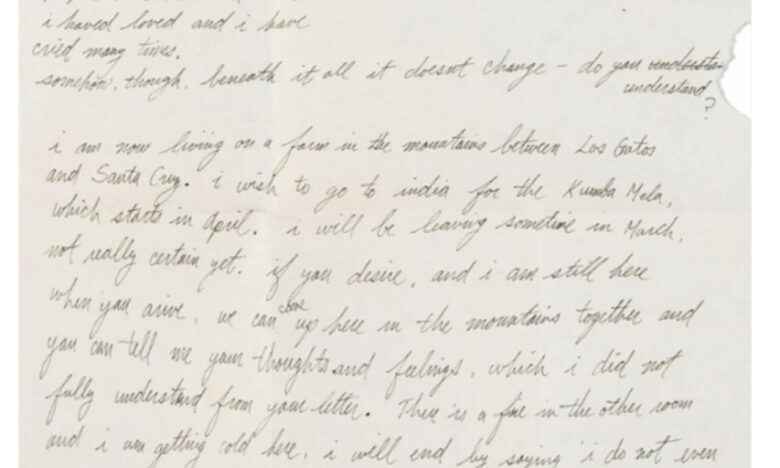 i haved loved and i have
cried many times.
somehow, though, beneath it all it doesnt change - do you understa
understand
?
i am now living on a farm in the mountains between Los Gatos
and Santa Cruz. i wish to go to india for the Kumba Mela,
which starts in April. i will be leaving sometime in March,
not really certain yet. if you desire, and i am still here
when you arive, we can come up here in the mountains together and
you can tell me your thoughts and feelings, which i did not
fully understand from your letter. There is a fire in the other room
and i am getting cold here, i will end by saying i do not even